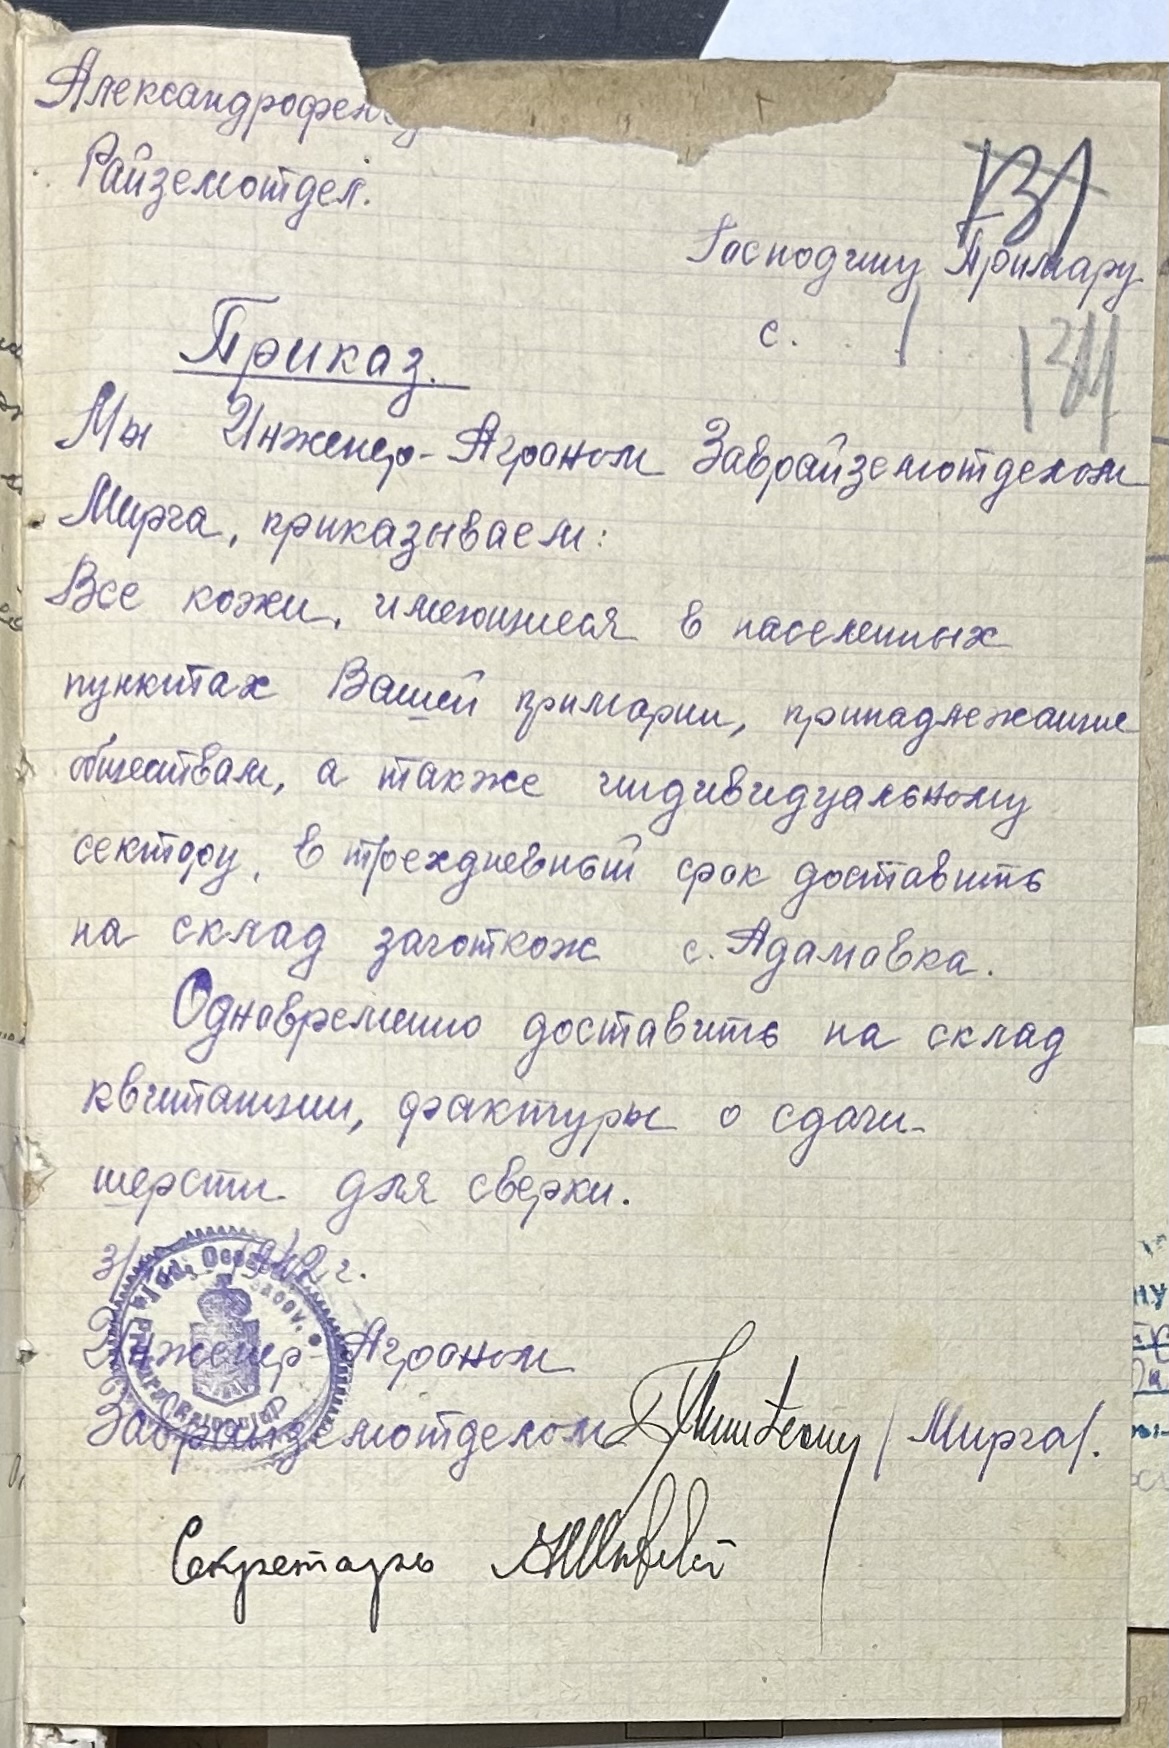 Александрофен
Райземотдел.
Господину Примару
с.
Приказ.
Мы Инженер-Агроном Заврайземотделом
Мирга, приказываем:
Все кожи, имеющиеся в населенных
пунктах Вашей примарии, принадлежащие
обществам, а также индивидуальному
сектору, в трехдневный срок доставить
на склад заготкож с. Адамовка.
Одновременно доставить на склад
квитанции, фактуры о сдачи
шерсти для сверки.
1942 г.
Инженер-Агроном
Заврайземотделом /Мирга/.
Секретарь